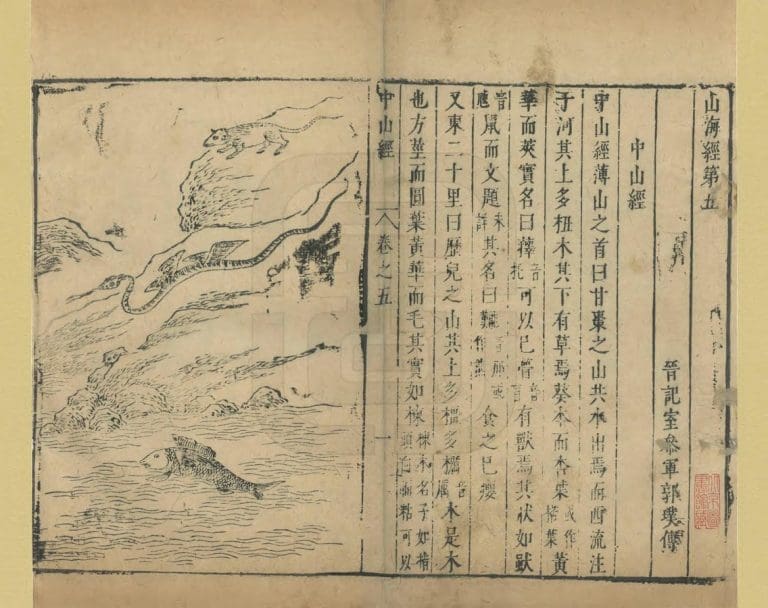 山海經第五
晉記室參軍郭璞傳
中山經
中山經薄山之首曰甘棗之山共水出焉而西流注
于河其上多杻木其下有草焉葵本而杏葉或作楛葉黃
華而莢實名曰籜音托可以已瞢音盲有獸焉其狀如
鼠而文題未詳其名曰音那或作食之已癭
又東二十里曰歷兒之山其上多橿多櫔音厲木是木
也方莖而圓葉黃華而毛其實如楝楝木名子如指頭白而粘可以
中山經 卷之五 一